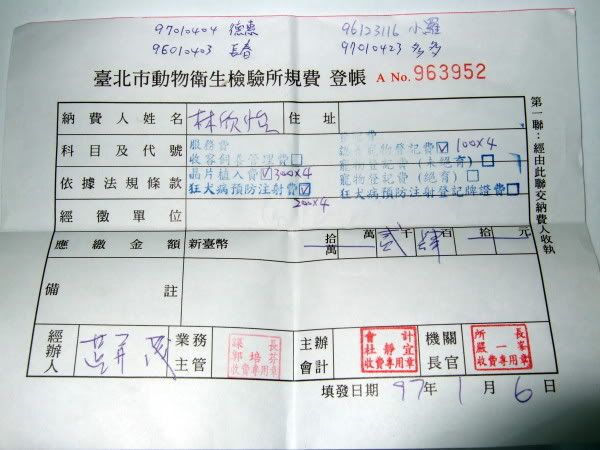 97010404 德惠 96123116 小羅
96010403 長春 97010423 多多
臺北市動物衛生檢驗所規費 登帳 A No. 963952
納費人姓名 林欣怡 住址
科目及代號 服務費
收容飼養管理費□ 登記費☑100x4
寵物登記費(未絕育)□
依據法規條款 晶片植入費☑300x4 寵物登記費(絕育)□
狂犬病預防注射費☑ 狂犬病預防注射登記牌證費□
經徵單位 200x4
應繳金額 新臺幣 拾萬 萬 貳千 肆百 拾 元
備註
經辦人 業務主管 課長 郭培芬 收費專用章 主辦會計 會計 杜靜宜 收費專用章 機關長官 所長 嚴一峯 收費專用章
填發日期 97年 1月 6日
第一聯:經由此聯交納費人收執